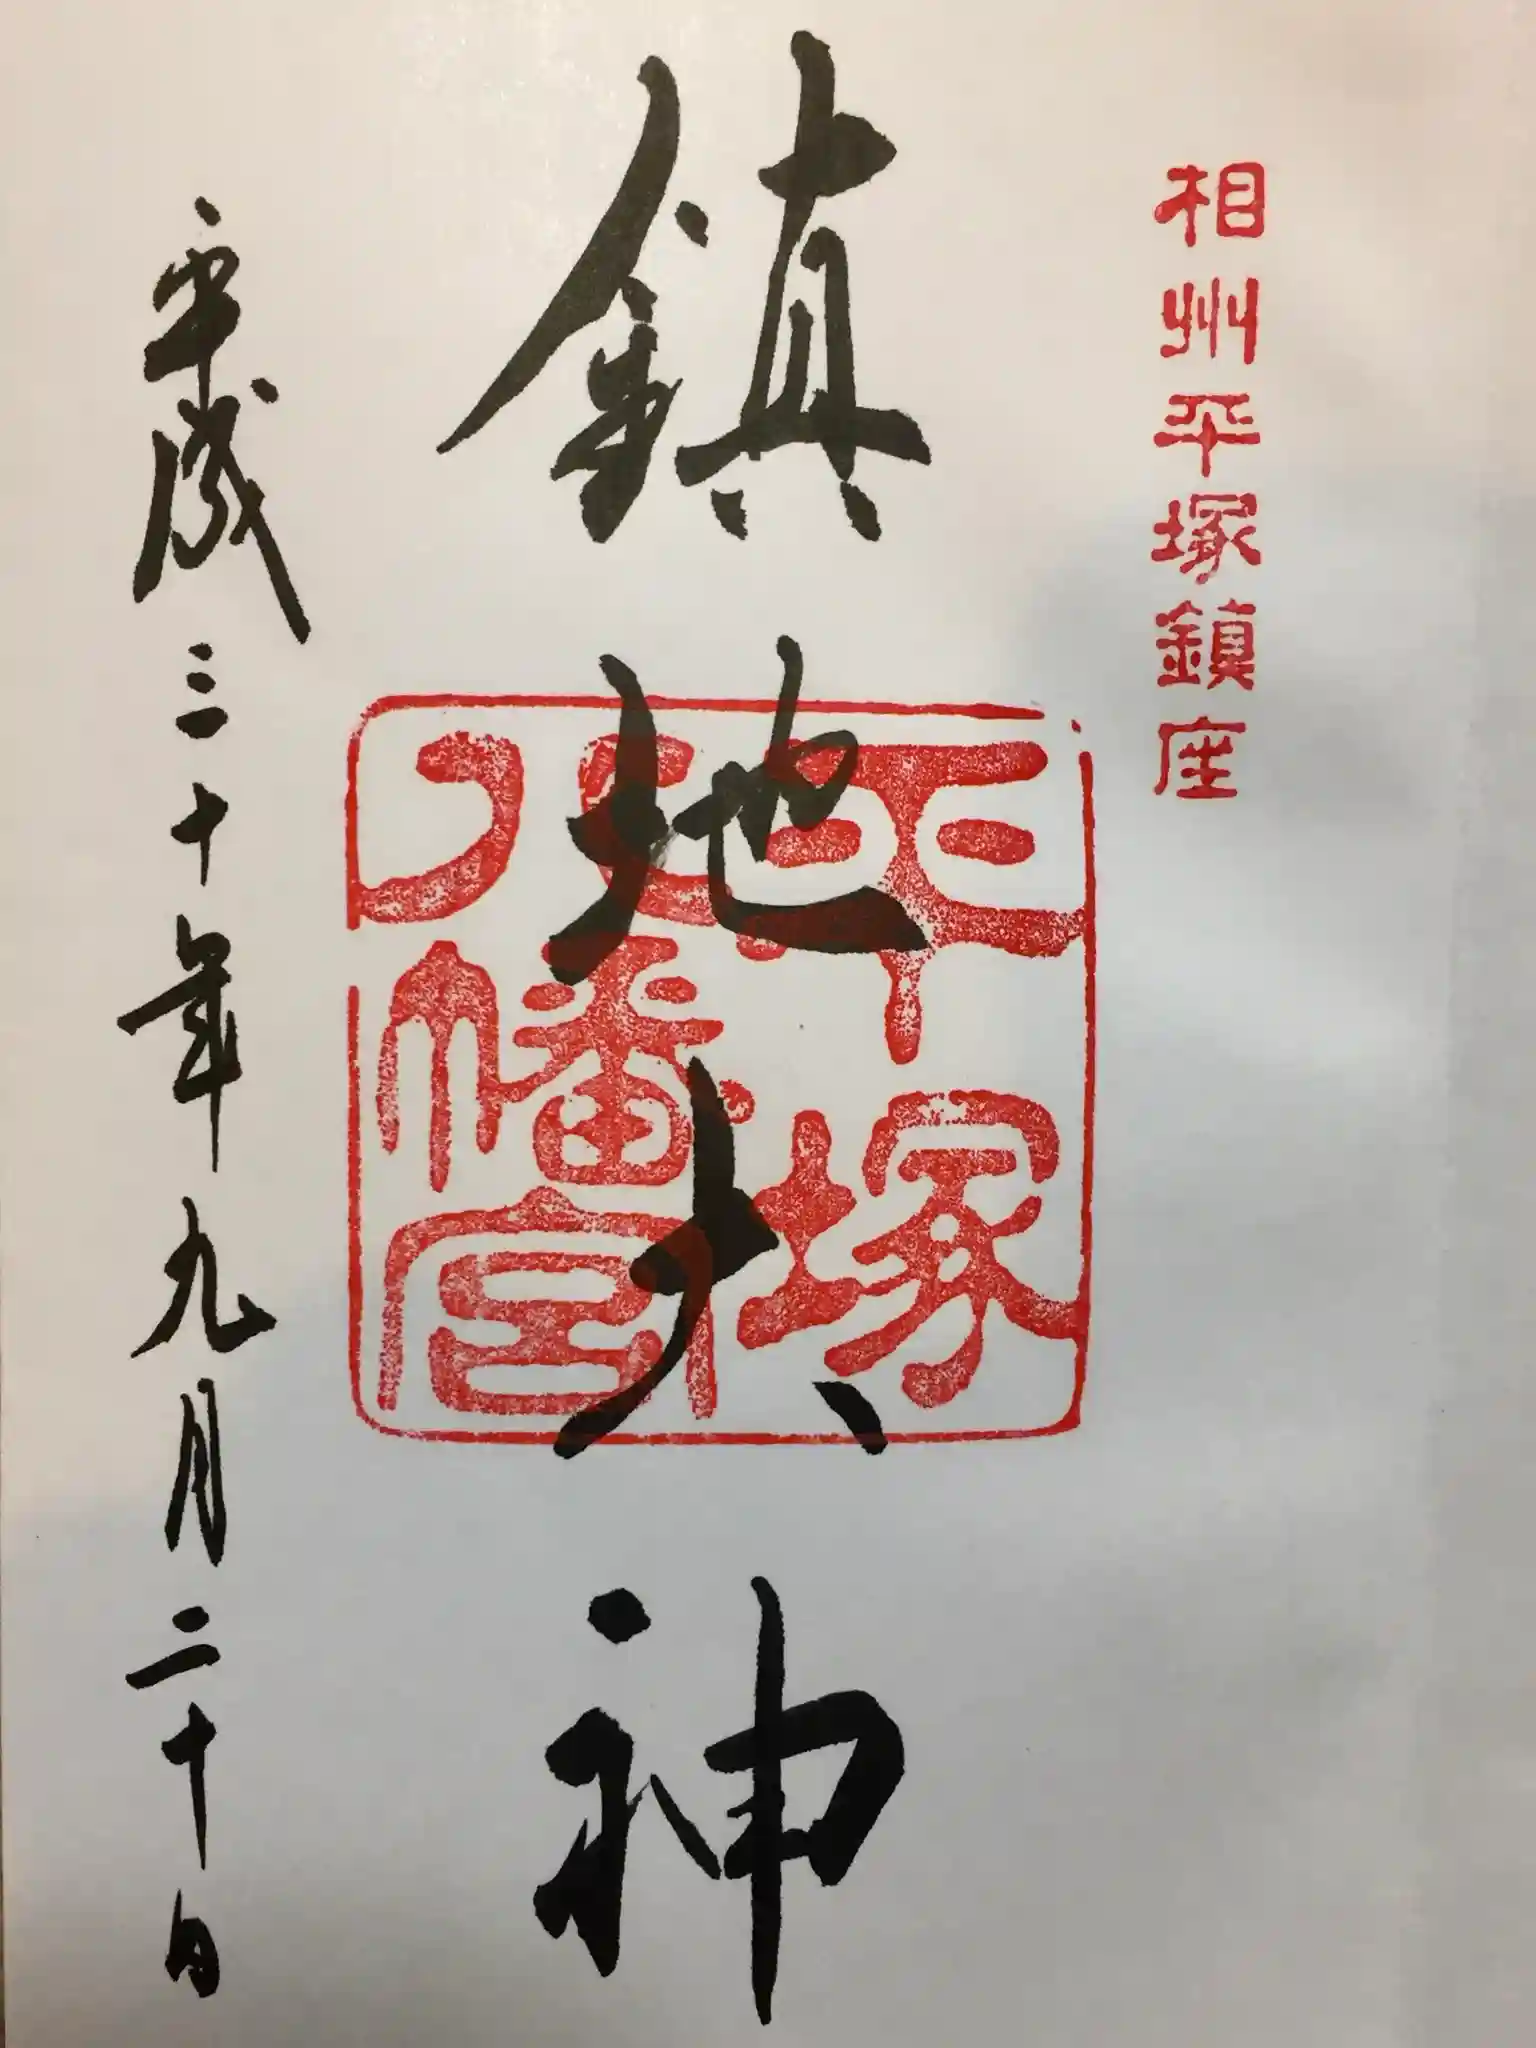 相州平塚鎮座
鎮地大神
平塚
八幡宮
平成三十年九月二十日